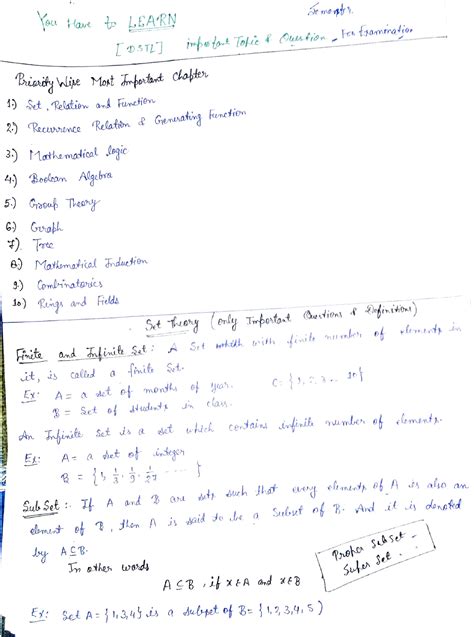 Semester.
You Have to LEARN
[DSTL] important Topic & Question For Examination
Priority Wise Most Important Chapter
1.) Set, Relation and Function
2.) Recurrence Relation & Generating Function
3.) Mathematical logic
4.) Boolean Algebra
5.) Group Theory
6) Graph
7). Tree
8) Mathematical Induction
9.) Combinatorics
10) Rings and Fields
Set Theory (only Important Questions & Definitions)
Finite and Infinite Set : A Set which with finite number of elements in
it, is called a finite Set.
Ex: A = a set of months of year. C: {1, 2, 3 ... 10}
B = Set of students in class.
An Infinite Set is a set which contains infinite number of elements.
Ex: A = a set of integer
B = {1, 1/3, 1/9, 1/27 ---- }
Sub Set :- If A and B are sets such that every elements of A is also an
element of B, then A is said to be a Subset of B. And it is denoted
by A⊆B.
In other words
Proper Subset -
Super Set -
A⊆B, if x∈A and x∈B
Ex: Set A = {1,3,4} is a subset of B = {1,2,3,4,5)